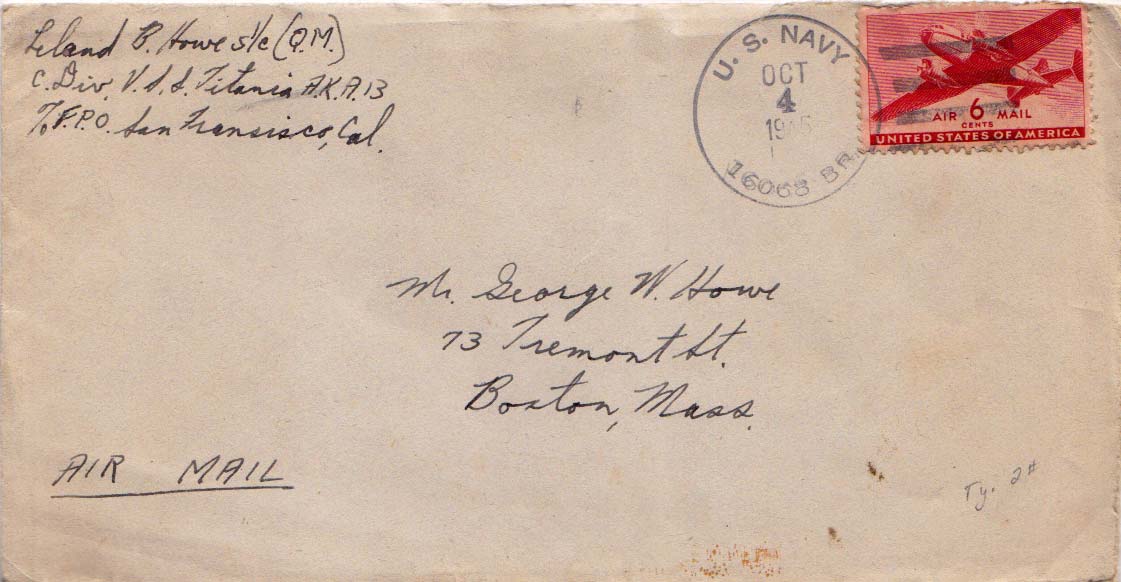 Leland B. Howe s1/c (Q.M.)
C. Div. U.S.S. Titania A.K.A. 13
℅ F.P.O. San Fransisco, Cal.
U. S. NAVY
OCT
4
1945
16068 BR.
AIR 6 MAIL
CENTS
UNITED STATES OF AMERICA
Mr. George W. Howe
73 Tremont St.
Boston, Mass.
AIR MAIL
Ty. 2#